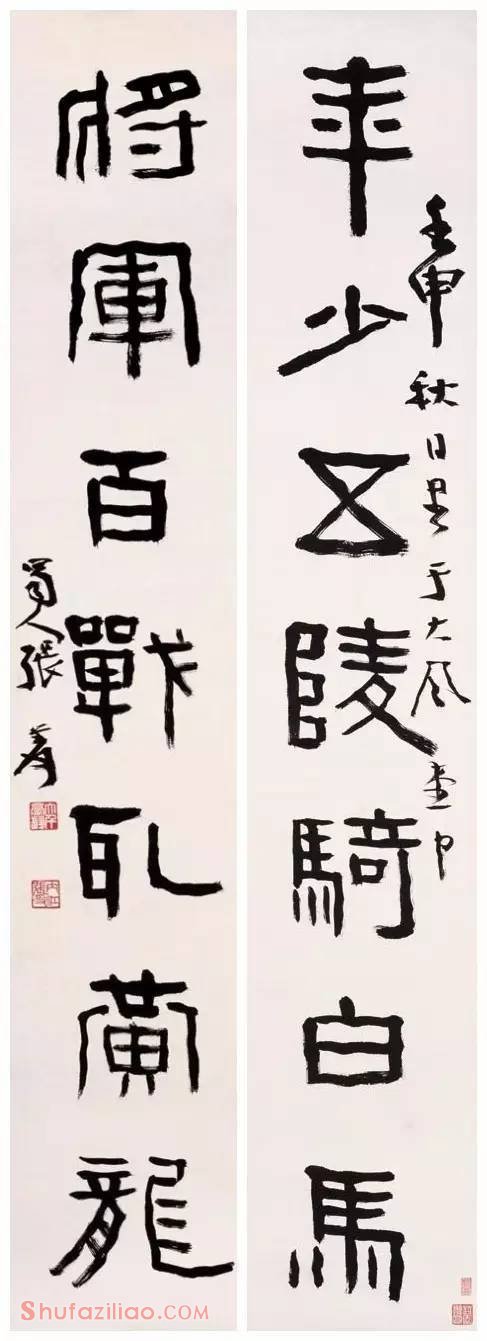 年少五陵騎白馬
壬申秋日書于大風堂中
將軍百戰取黃龍
蜀人張爰
Shufaziliao.com